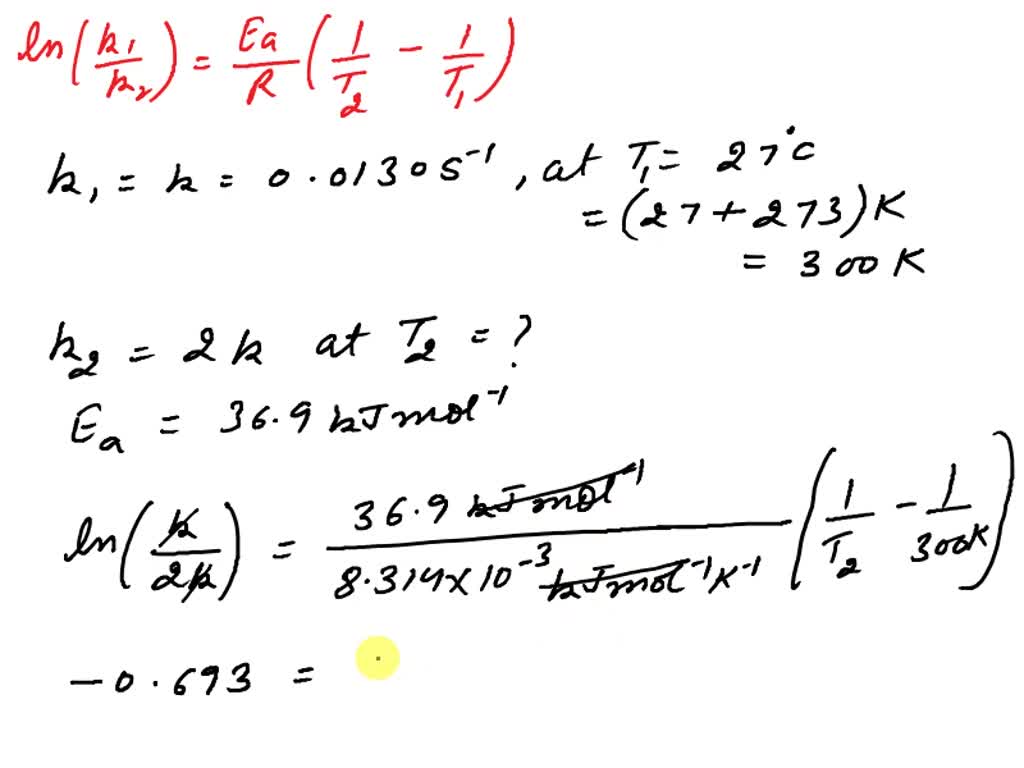 ln(k₁/k₂) = Ea/R (1/T₂ − 1/T₁)
k₁ = k = 0.0130 s⁻¹, at T₁ = 27°C
= (27 + 273) K
= 300 K
k₂ = 2k at T₂ = ?
Ea = 36.9 kJ mol⁻¹
ln(k/2k) = 36.9 kJ mol⁻¹ / 8.314 × 10⁻³ kJ mol⁻¹ K⁻¹ (1/T₂ − 1/300K)
−0.693 =